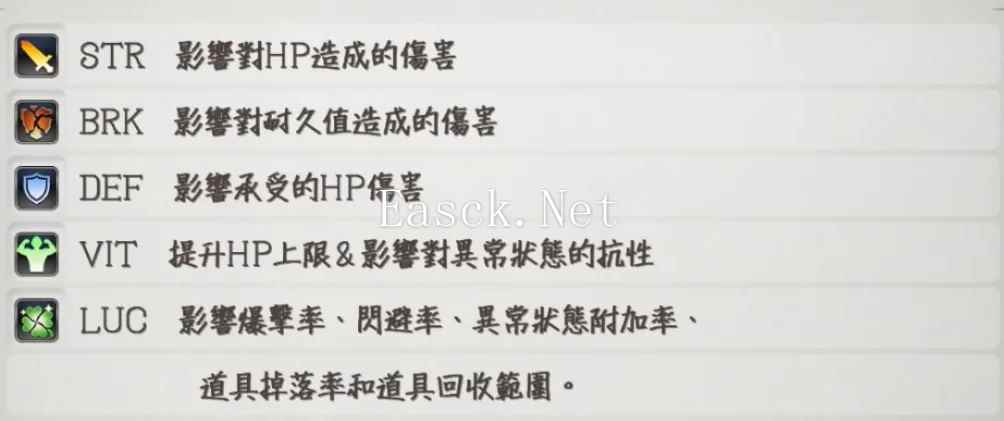 STR 影響對HP造成的傷害
BRK 影響對耐久值造成的傷害
DEF 影響承受的HP傷害
Easck.Net
VIT 提升HP上限&影響對異常狀態的抗性
LUC 影響爆擊率、閃避率、異常狀態附加率、
道具掉落率和道具回收範圍。